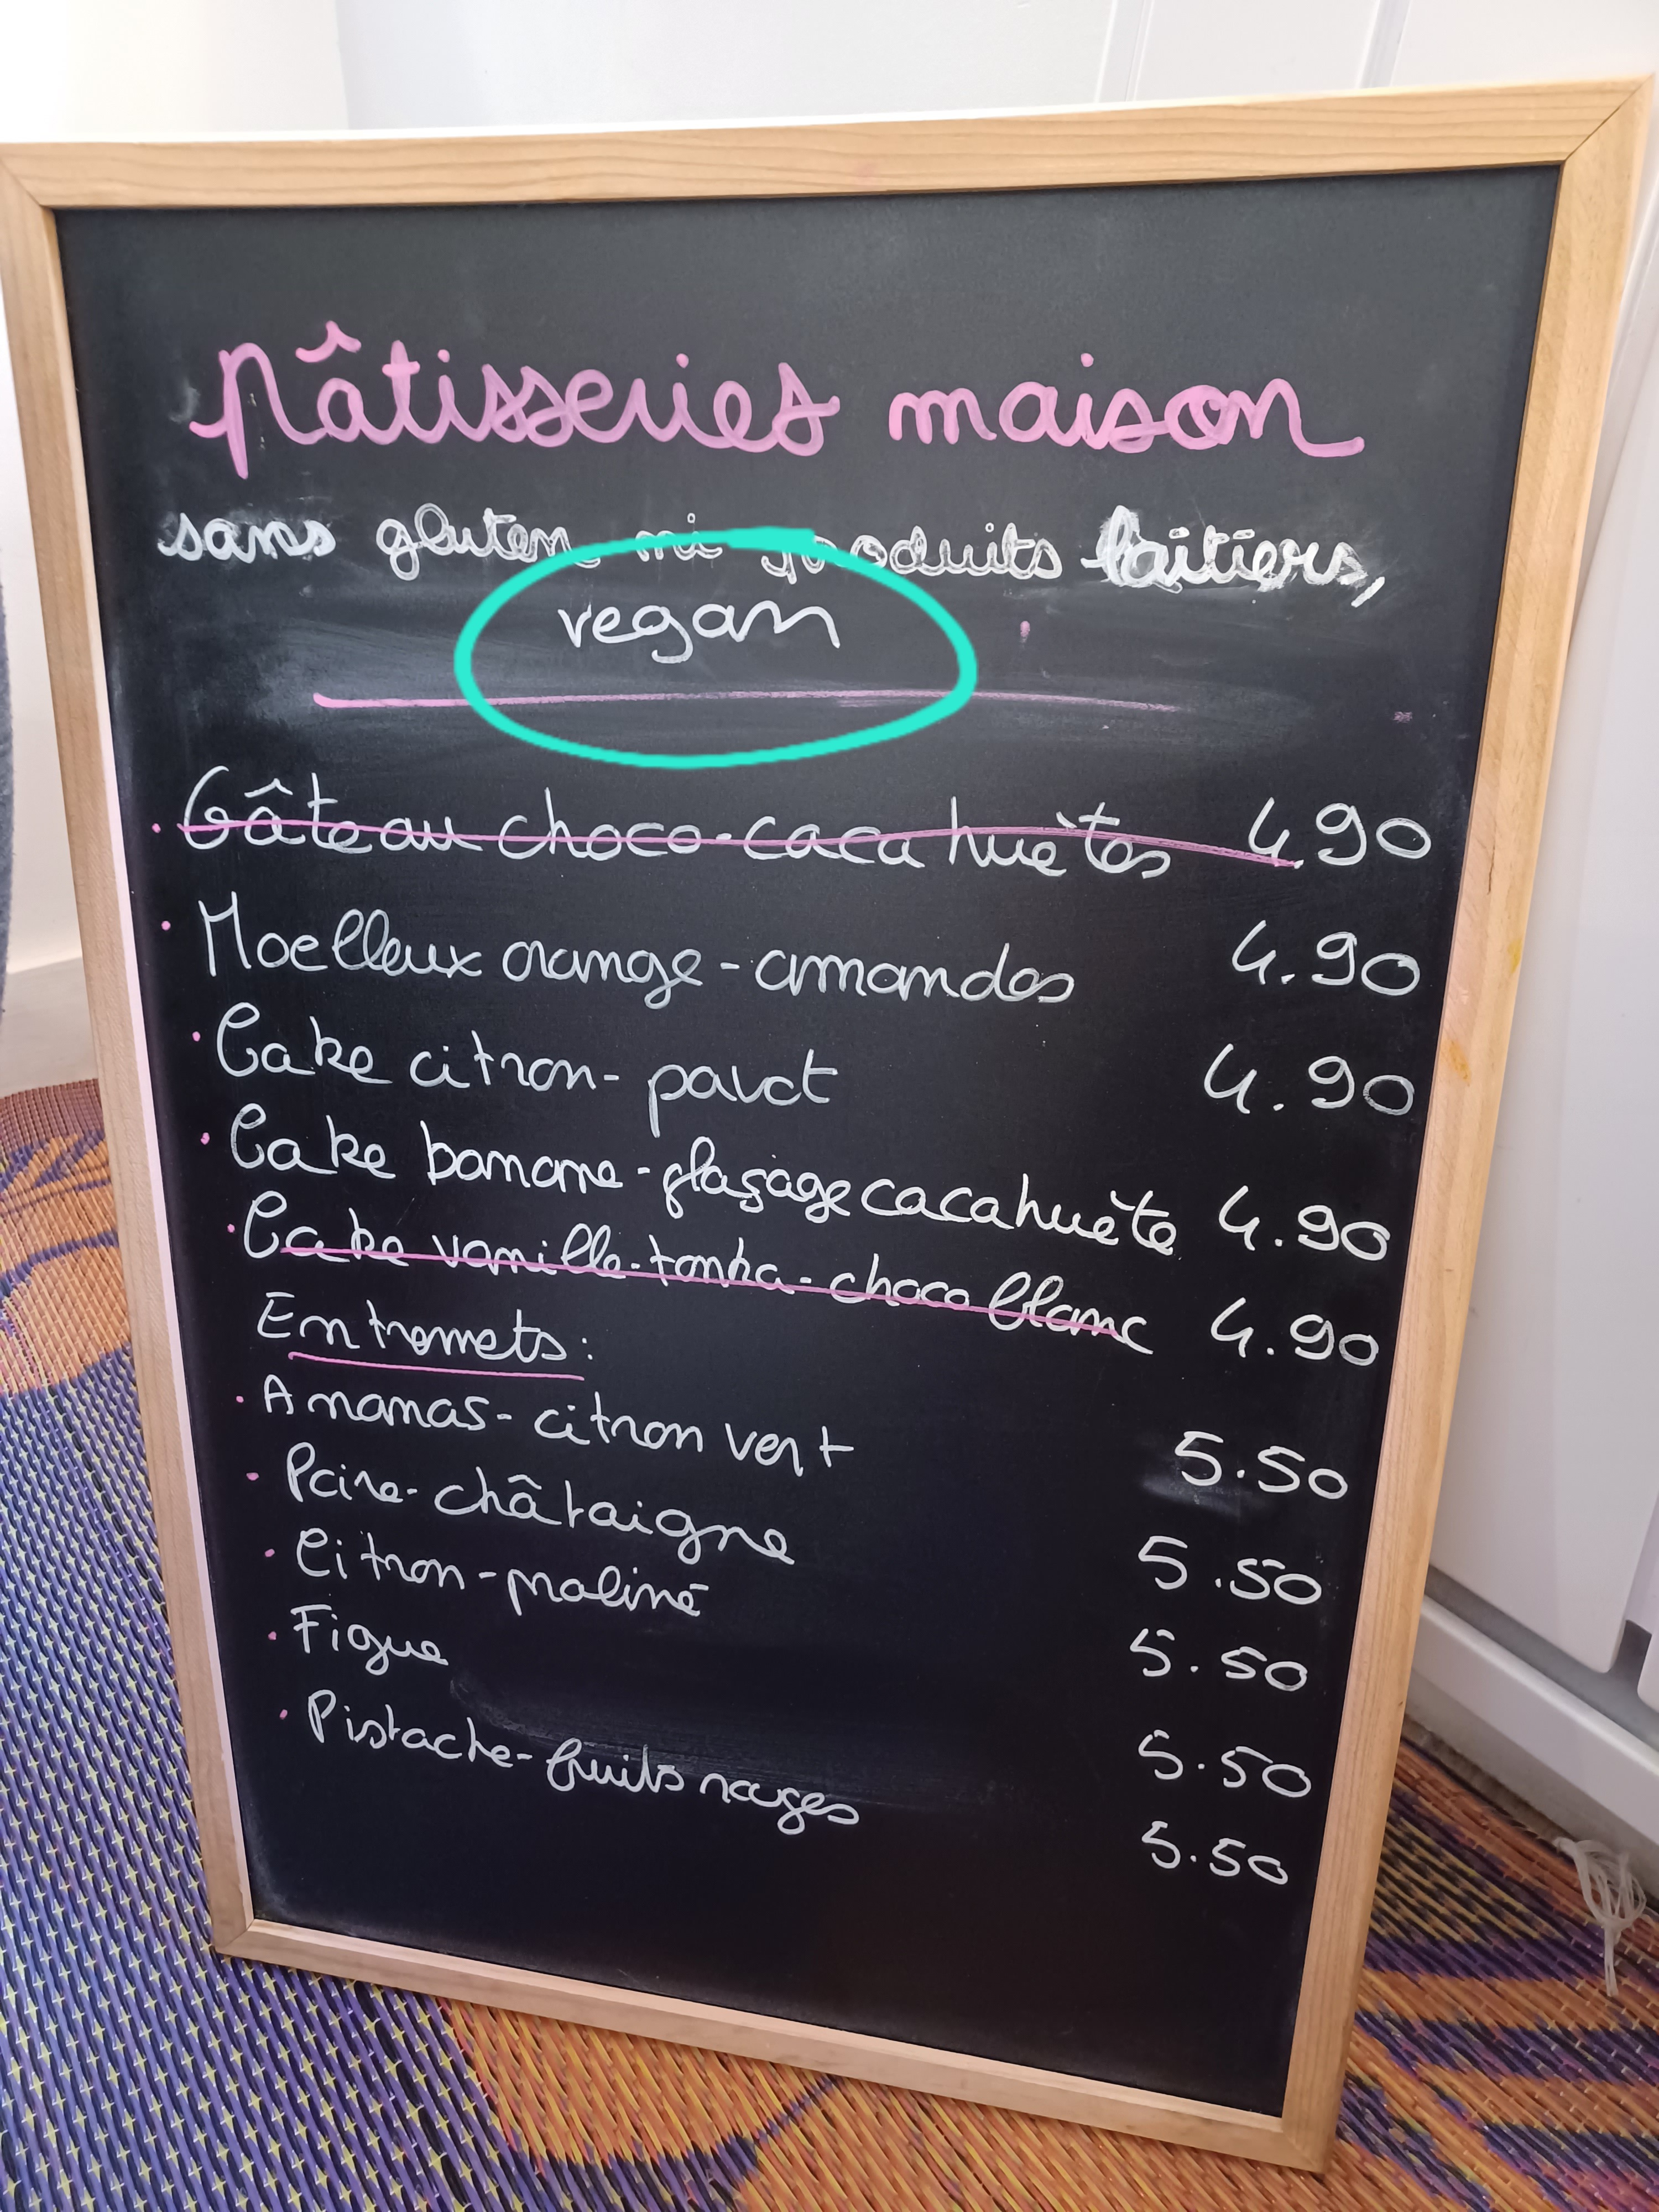 pâtisseries maison
sans gluten ni produits laitiers,
vegan
Gâteau choco-cacahuètes 4.90
Moelleux orange-amandes 4.90
Cake citron-pavot 4.90
Cake banane-glaçage cacahuète 4.90
Cake vanille-tonka-choco blanc 4.90
Entremets:
Ananas-citron vert 5.50
Poire-châtaigne 5.50
Citron-praliné 5.50
Figue 5.50
Pistache-fruits rouges 5.50